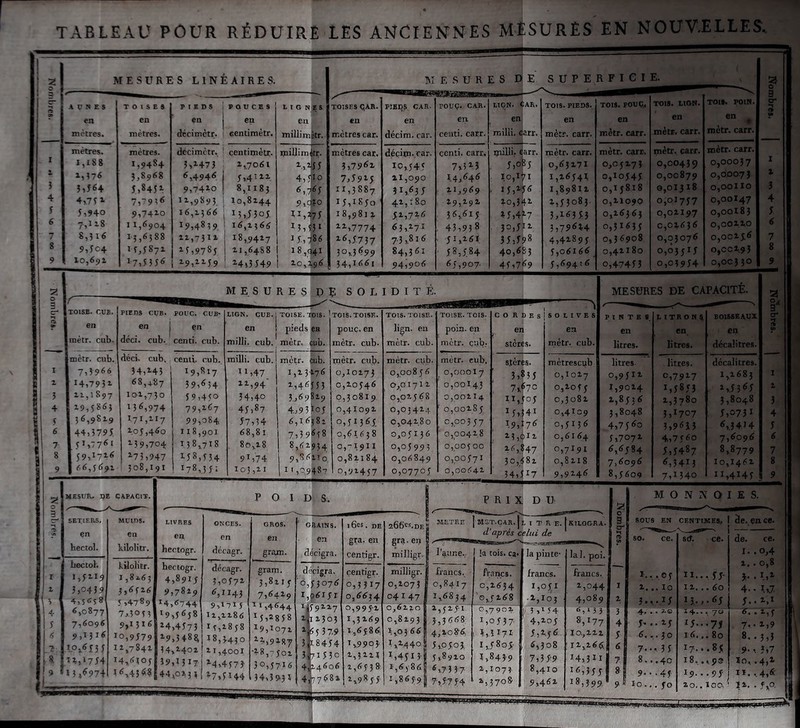 TABLEAU POUR RÉDUIRE LES ANCIENNES MESURES EN NOUVELLES.
MESURES LINÉAIRES.
MESURES DE SUPERFICIE.
Nombres. AUNES en mètres. TOISES en mètres. PIEDS en décimètr. POUCES en centimètr. LIGNES en millimètr. TOISES CAR. en mètres car. PIEDS CAR. en décim. car. POUÇ. CAR. en centi. carr. LIGN. CAR. en milli. carr. TOIS. PIEDS. en mètr. carr. TOIS. POUÇ. en mètr. carr. TOIS. LIGN. en mètr. carr. TOIS. POIN. en mètr. carr. Nombres.
mètres. mètres. décimètr. centimètr. millimètr. mètres car. décim. car. centi. carr. milli. carr. mètr. carr. mètr. carr. mètr. carr. mètr. carr.
1 1,188 1,9484 3,2473 2,7061 2,255 3,7962 10,545 7,323 5,085 0,63271 0,05273 0,00439 0,00037 1
2 2,376 3,8968 6,4946 5,4122 4,510 7,5925 21,090 14,646 10,171 1,26541 0,10545 0,00879 0,00073 2
3 3,564 5,8452 9,7420 8,1183 6,765 11,3887 31,635 21,969 15,256 1,89812 0,15818 0,01318 0,00110 3
4 4,752 7,7936 12,9893 10,8244 9,020 15,1850 42,180 29,292 20,342 2,53083 0,21090 0,01757 0,00147 4
5 5,940 9,7420 16,2366 13,5305 11,275 18,9812 52,726 36,615 25,427 3,16353 0,26363 0,02197 0,00183 5
6 7,128 11,6904 19,4839 16,2366 13,531 22,7774 63,271 43,938 30,512 3,79624 0,31635 0,02636 0,00220 6
7 8,316 13,6388 22,7312 18,9427 15,786 26,5737 73,816 51,261 35,598 4,42895 0,36908 0,03076 0,00256 7
8 9,504 15,5872 25,9785 21,6488 18,041 30,3699 84,361 58,584 40,683 5,06166 0,42180 0,03515 0,00293 8
9 10,692 17,5356 29,2259 24,3549 20,296 34,1661 94,906 65,907 45,769 5,69436 0,47453 0,03954 0,00330 9
MESURES DE SOLIDITÉ.
MESURES DE CAPACITÉ.
Nombres. TOISE. CUB. en mètr. cub. PIEDS CUB. en déci. cub. POUC. CUB. en centi. cub. LIGN. CUB. en milli. cub. TOISE. TOIS. pieds en mètr. cub. TOIS. TOISE. pouc. en mètr. cub. TOIS. TOISE. lign. en mètr. cub. TOISE. TOIS. poin. en mètr. cub. CORDES en stères. SOLIVES en mètr. cub. PINTES en litres. LITRONS en litres. BOISSEAUX en décalitres. Nombres.
mètr. cub. déci. cub. centi. cub. milli. cub. mètr. cub. mètr. cub. mètr. cub. mètr. cub. stères. mètrescub litres. litres. décalitres.
1 7,3966 34,243 19,817 11,47 1,23276 0,10273 0,00856 0,00017 3,835 0,1027 0,9512 0,7927 1,2683 1
2 14,7932 68,487 39,634 22,94 2,46553 0,20546 0,01712 0,00143 7,670 0,2055 1,9024 1,5853 2,5365 2
3 22,1897 102,730 59,450 34,40 3,69829 0,30819 0,02568 0,00214 11,505 0,3082 2,8536 2,3780 3,8048 3
4 29,5863 136,974 79,267 45,87 4,93105 0,41092 0,03424 0,00285 15,341 0,4109 3,8048 3,1707 5,0731 4
5 36,9829 171,217 99,084 57,34 6,16382 0,51365 0,04280 0,00357 19,176 0,5136 4,7560 3,9633 6,3414 5
6 44,3795 205,460 118,901 68,81 7,39658 0,61638 0,05136 0,00428 23,011 0,6164 5,7072 4,7560 7,6096 6
7 51,7761 239,704 138,718 80,28 8,62934 0,71911 0,05993 0,00500 26,847 0,7191 6,6584 5,5487 8,8779 7
8 59,1726 273,947 158,534 91,74 9,86210 0,82184 0,06849 0,00571 30,682 0,8218 7,6096 6,3413 10,1462 8
9 66,5692 308,191 178,351 103,21 11,09487 0,92457 0,07705 0,00642 34,517 9,9246 8,5609 7,1340 11,4145 9
MESUR. DE CAPACIT.
POIDS.
PRIX DU
MONNOIES.
SETIERS. en hectol. MUIDS. en kilolitr. LIVRES en hectogr. ONCES. en décagr. GROS. en gram. GRAINS. en décigra. 16es. DE gra. en centigr. 266es. DE gra. en milligr.
METRE MET. CAR. LITRE. KILOGRA.
d'après celui de
l'aune. la tois. ca. la pinte. la l. poi.
Nombres. SOUS EN CENTIMES, de. en ce.
so. ce. so. ce. de. ce.
hectol. kilolitr. hectogr. décagr. gram. décigra. centigr. milligr. francs. francs. francs. francs.
1 1,5219 1,8263 4,8915 3,0572 3,8215 0,53076 0,3317 0,2073 0,8417 0,2634 1,051 2,044 1
2 3,0439 3,6526 9,7829 6,1143 7,6429 1,06151 0,6634 04147 1,6834 0,5268 2,103 4,089 2
3 4,5658 5,4789 14,6744 9,1715 11,4644 1,59227 0,9952 0,6220 2,5251 0,7902 3,154 6,133 3
4 6,0877 7,3053 19,5658 12,2286 15,2858 2,12303 1,3269 0,8293 3,3668 1,0537 4,205 8,177 4
5 7,6096 9,1316 24,4573 15,2858 19,1072 2,65379 1,6586 1,0366 4,2086 1,3171 5,256 10,222 5
6 9,1316 10,9579 29,3488 18,3430 22,9287 3,18454 1,9903 1,2440 5,0503 1,5805 6,308 12,266 6
7 10,6535 12,7842 34,2402 21,4001 28,7502 3,71530 2,3221 1,4513 5,8920 1,8439 7,359 14,311 7
8 12,1754 14,6105 39,1317 24,4573 30,5716 4,24606 2,6538 1,6586 6,7337 2,1073 8,410 16,355 8
9 13,6974 16,4368 44,0231 27,5144 34,3931 4,77682 2,9855 1,8659 7,5754 2,3708 9,462 18,399 9
1. . 0,4
2. . 0,8
1...05 11...55 3..1,2
2...10 12...60 4..1,7
3...15 13...65 5..2,1
4...20 14...70 6..2,5
5...25 15...75 7..2,9
6...30 16...80 8..3,3
7...35 17...85 9..3,7
8...40 18...90 10..4,2
9...45 19...95 11..4,6
10...50 20..100. 12..5,0